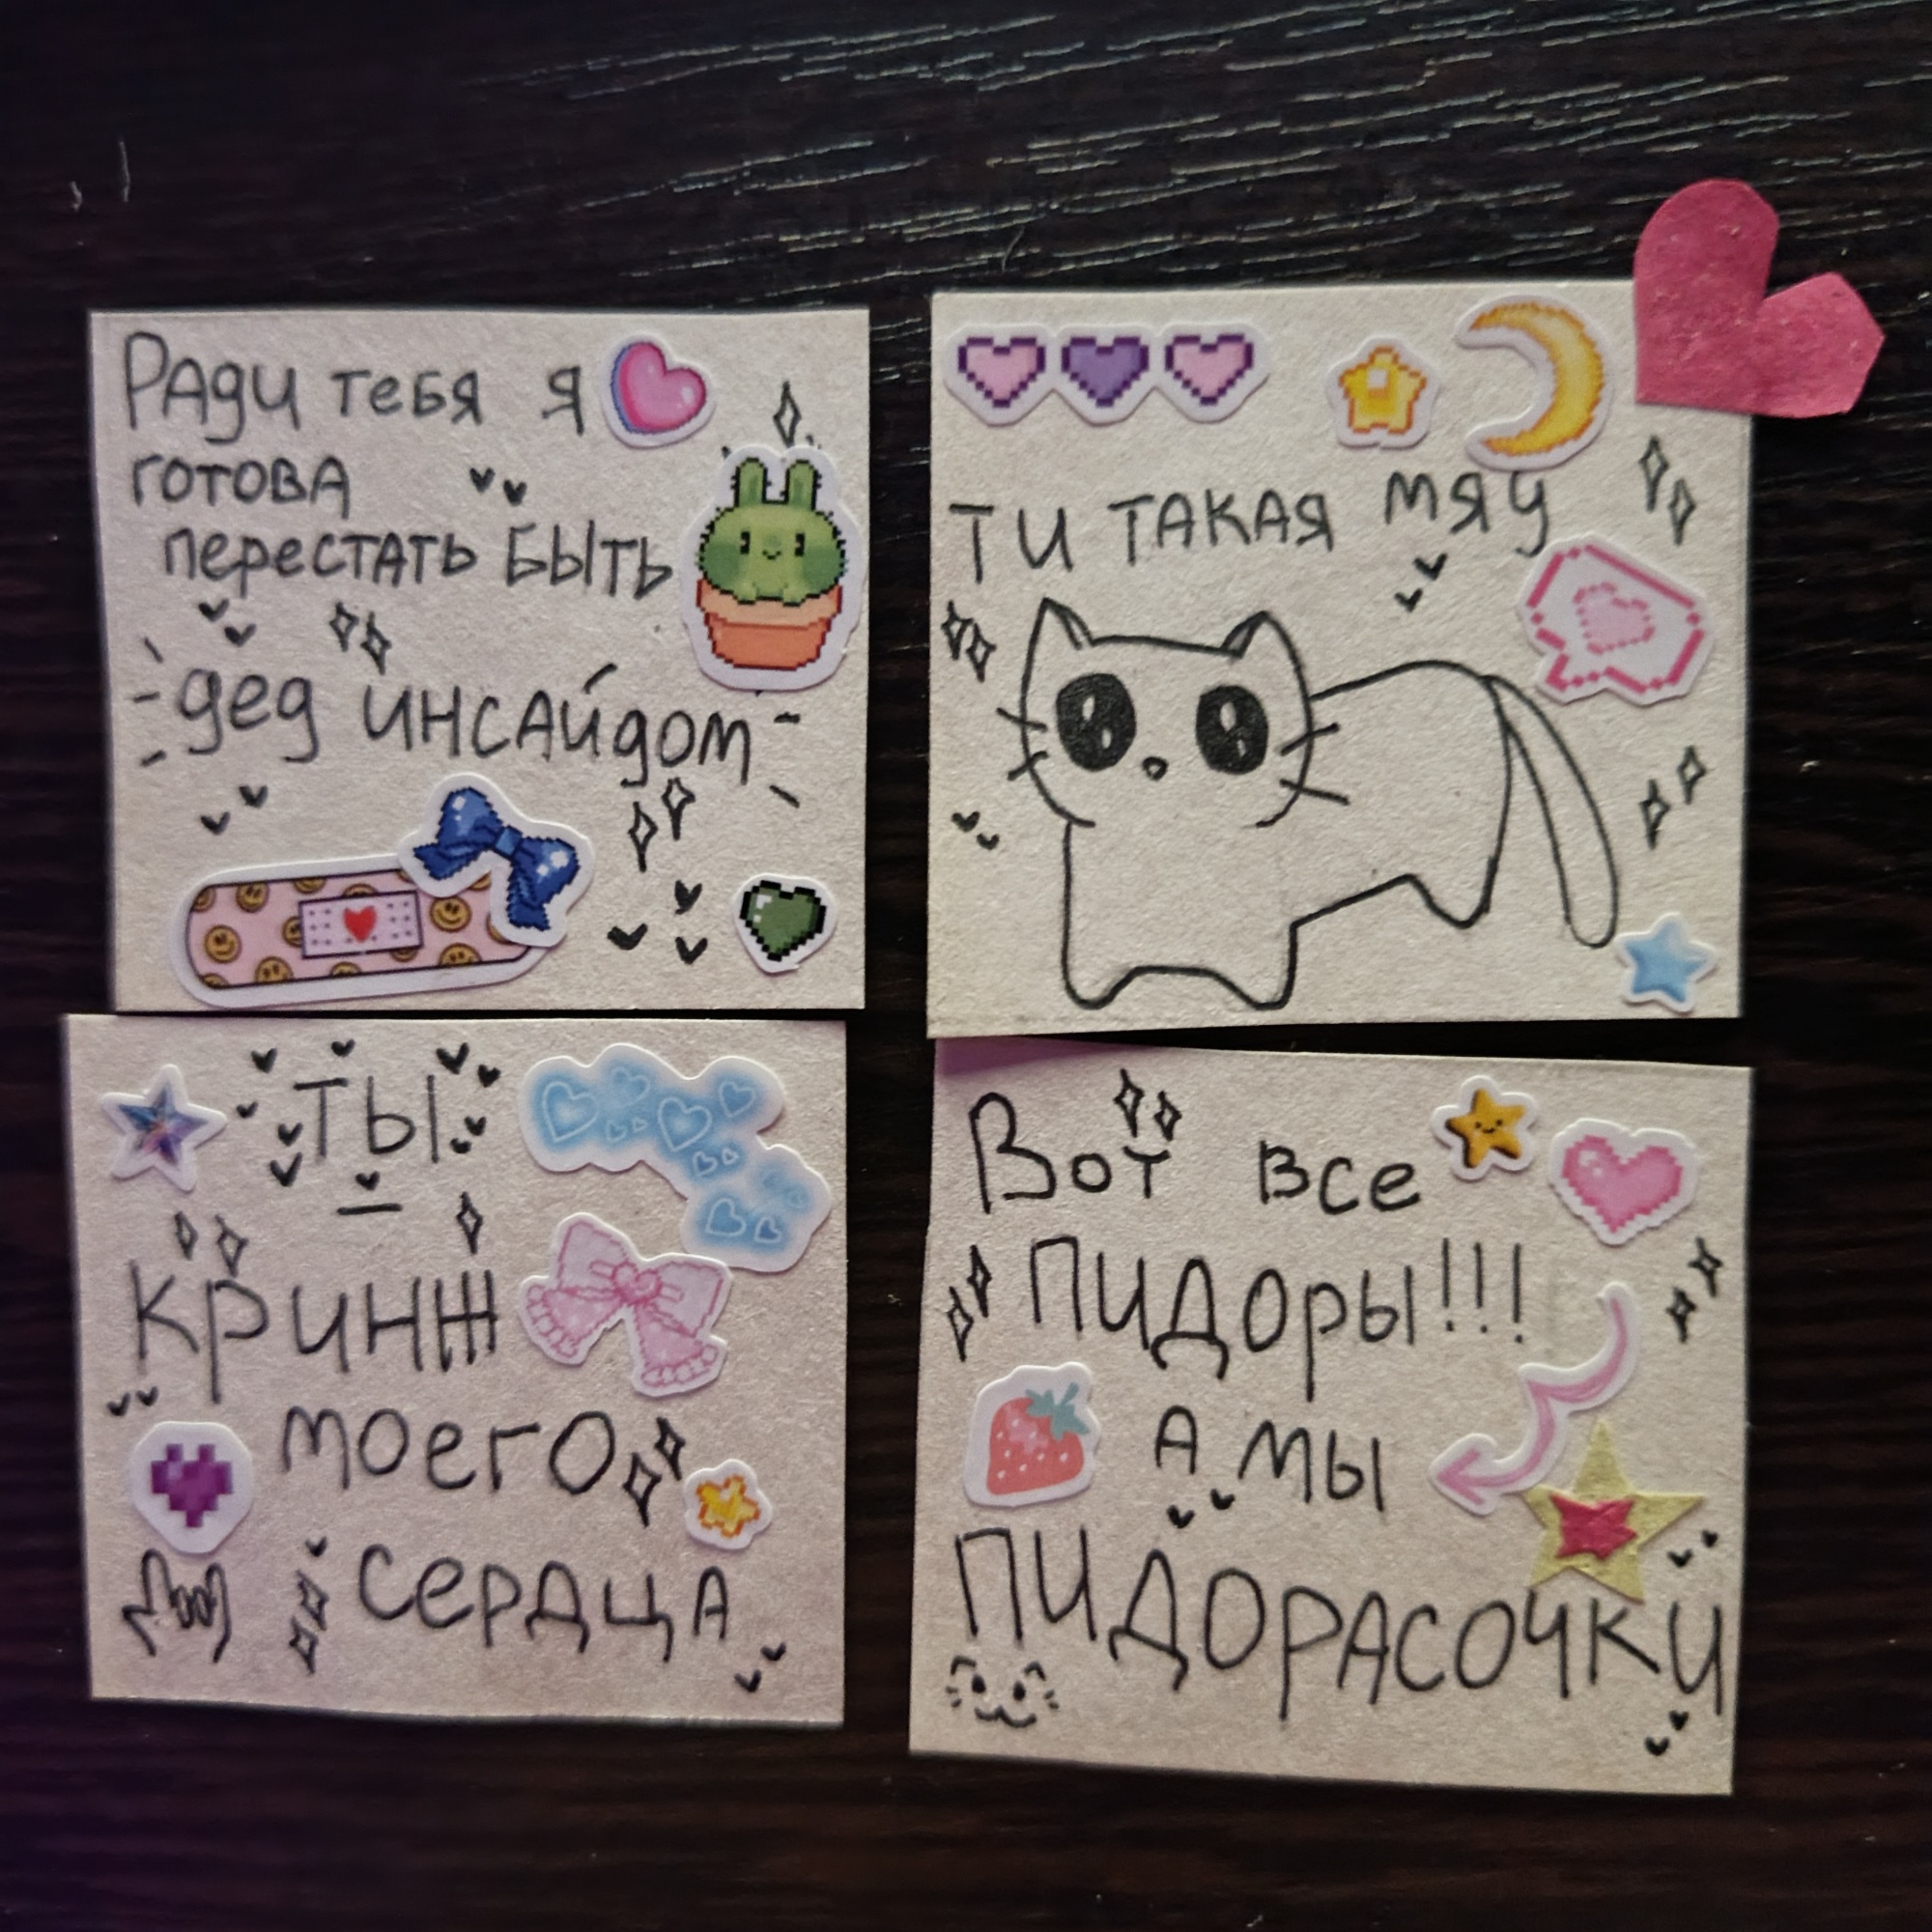 Ради тебя я
готова
перестать быть
дед инсайдом
ти такая мяу
ты
кринж
моего
сердца
Вот все
пидоры!!!
а мы
пидорасочки